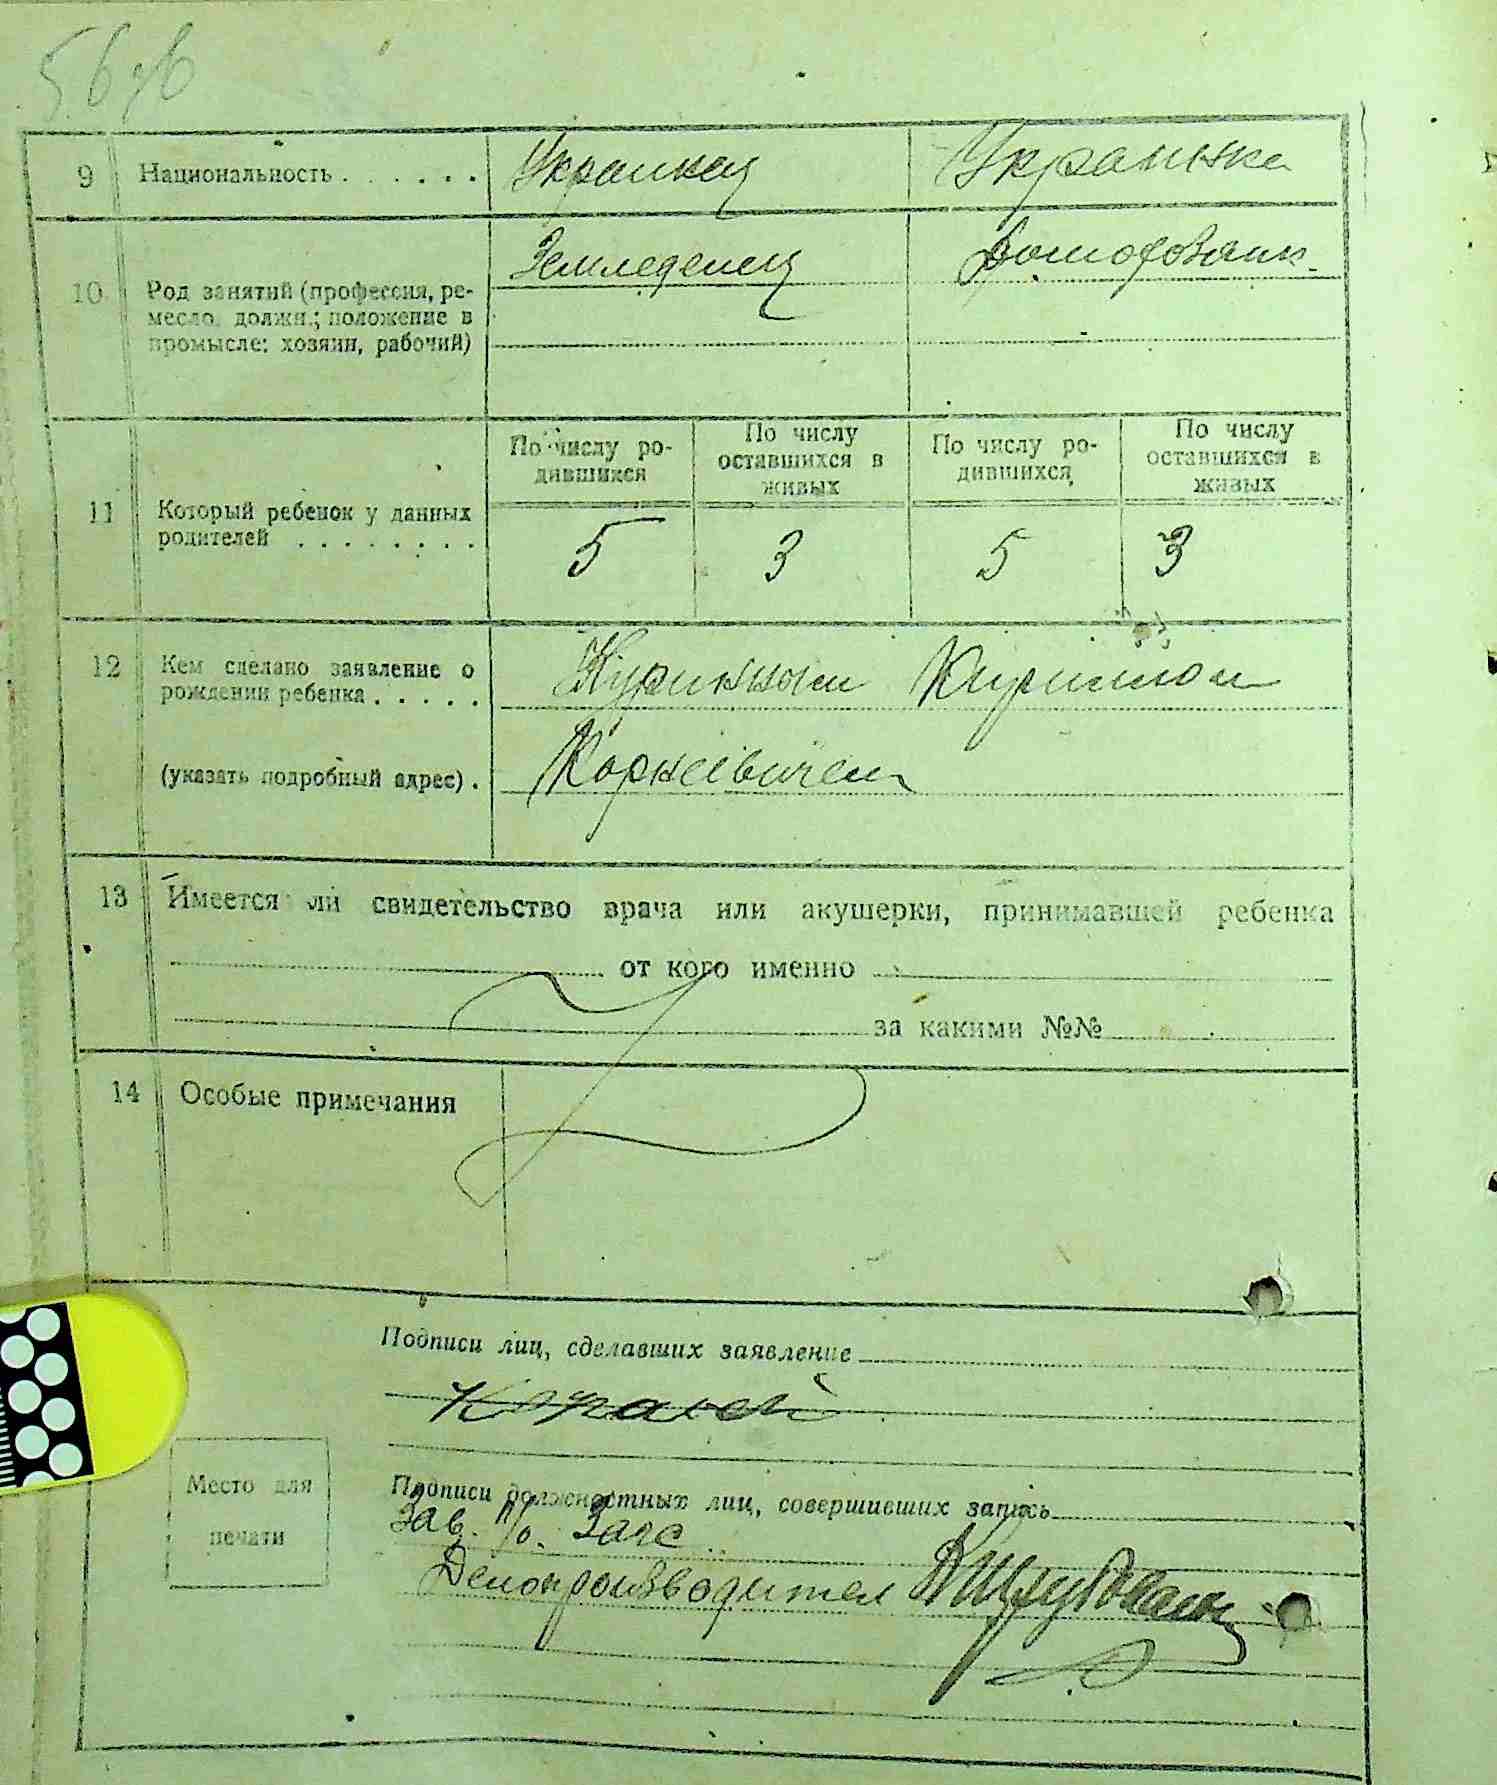 9 Национальность . . . . . . Украинец Украинка
10 Род занятий (профессия, ре-
месло, должн.; положение в
промысле: хозяин, рабочий)
Земледелец
11 Который ребенок у данных
родителей . . . . . . . .
По числу ро-
дившихся
По числу
оставшихся в
живых
По числу ро-
дившихся
По числу
оставшихся в
живых
5 3 5 3
12 Кем сделано заявление о
рождении ребенка . . . . .
(указать подробный адрес) .
Корнеівичем
13 Имеется ли свидетельство врача или акушерки, принимавшей ребенка
от кого именно
за какими №№
14 Особые примечания
Подписи лиц, сделавших заявление
Место для
печати
Подписи должностных лиц, совершивших запись
Зав. п/о. Загс
Делопроизводител